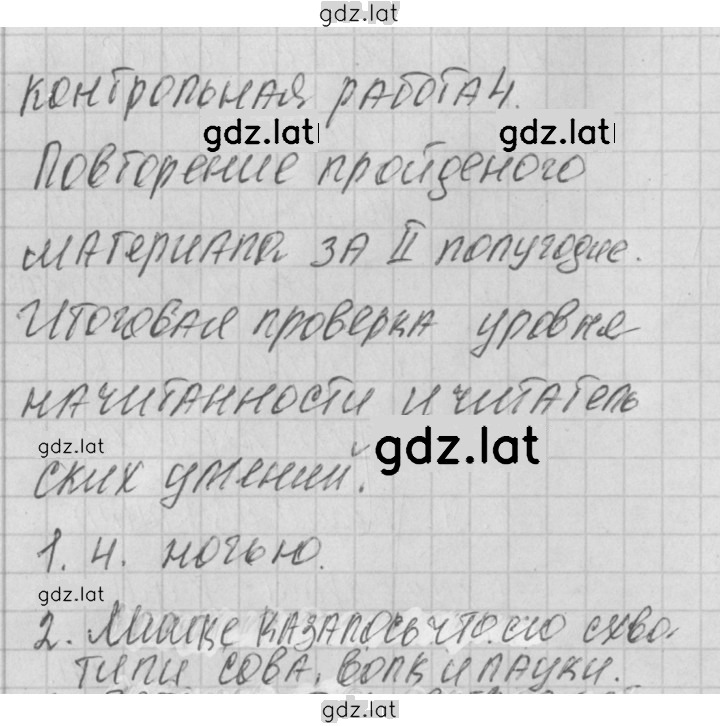 gdz.lat
контрольная работа 4.
gdz.lat gdz.lat
Повторение пройденого
материала за II полугодие.
Итоговая проверка уровня
начитанности и читатель
gdz.lat
gdz.lat
ских умений.
1. 4. ночью.
gdz.lat
2. Мишке казалось что его схва-
тили сова, волк и пауки.
gdz.lat